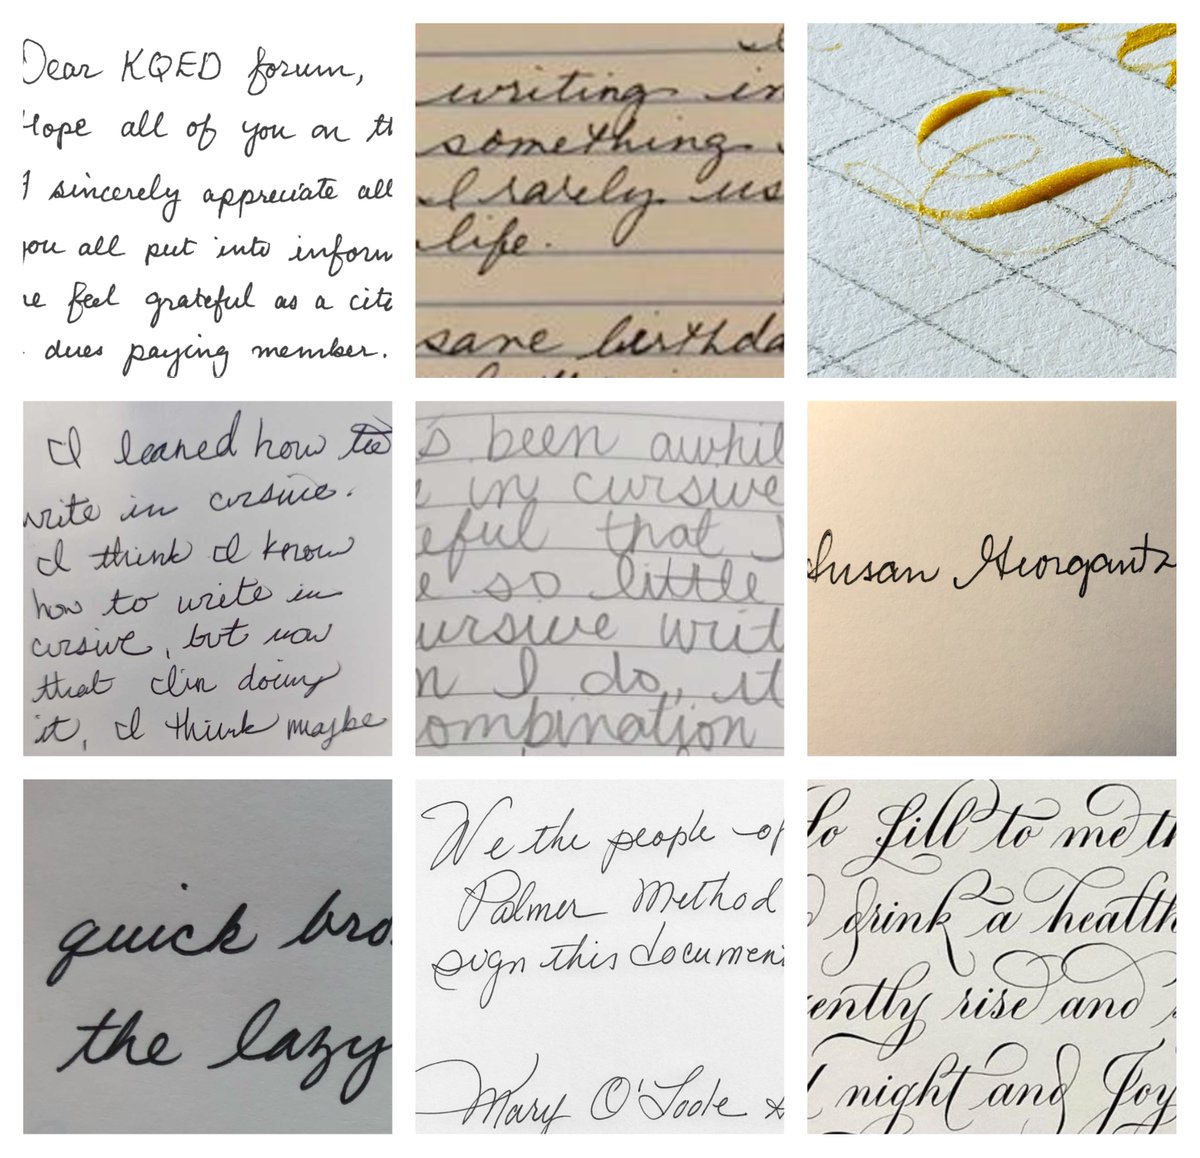 Dear KQED forum,
Hope all of you on th
I sincerely appreciate all
you all put into inform
we feel grateful as a citi
dues paying member.
writing in
something
I rarely us
life.
same birthda
I leaned how to
write in cursive.
I think I know
how to write in
cursive, but now
that I'm doing
it, I think maybe
's been awhil
e in cursive
eful that I
e so little
ursive writ
n I do, it
ombination
Susan Georgantz
quick bro
the lazy
We the people of
Palmer Method
sign this document
Mary O'Toole &
So fill to me th
drink a health
ently rise and
night and Joy